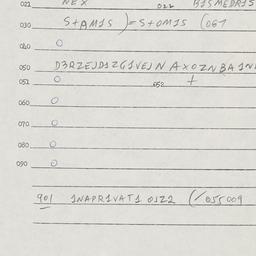 021 NEX 022 BISMEDRIS
030 S+AMIS )=S+OMIS (067
040
050 D3RZEJD1ZG1VEJN AXOZNBA1N
051 052 +
060
070
080
090
901 1NAPR1VAT1 O1Z2 (/055009